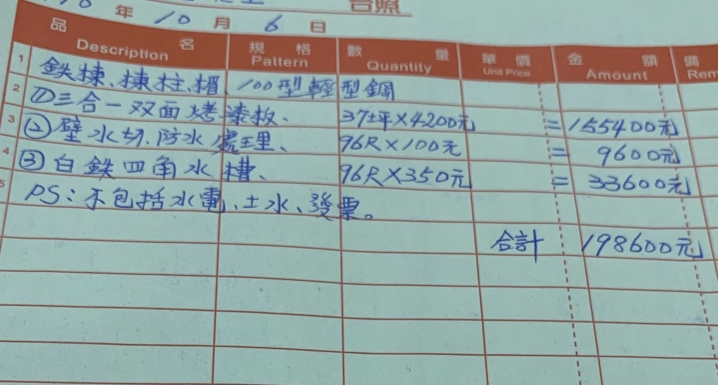 台照
年 10 月 6 日
品名 Description 規格 Pattern 數量 Quantity 單價 Unit Price 金額 Amount 備 Rem
1 鉄棟、棟柱楣、100型輕型鋼
2 ①三合一双面烤漆板、 37坪×4200元 =155400元
3 ②壁水切、防水處理、 96R×100元 = 9600元
4 ③白鉄四角水槽、 96R×350元 = 33600元
5 PS:不包括水電、土水、發票。
合計 198600元